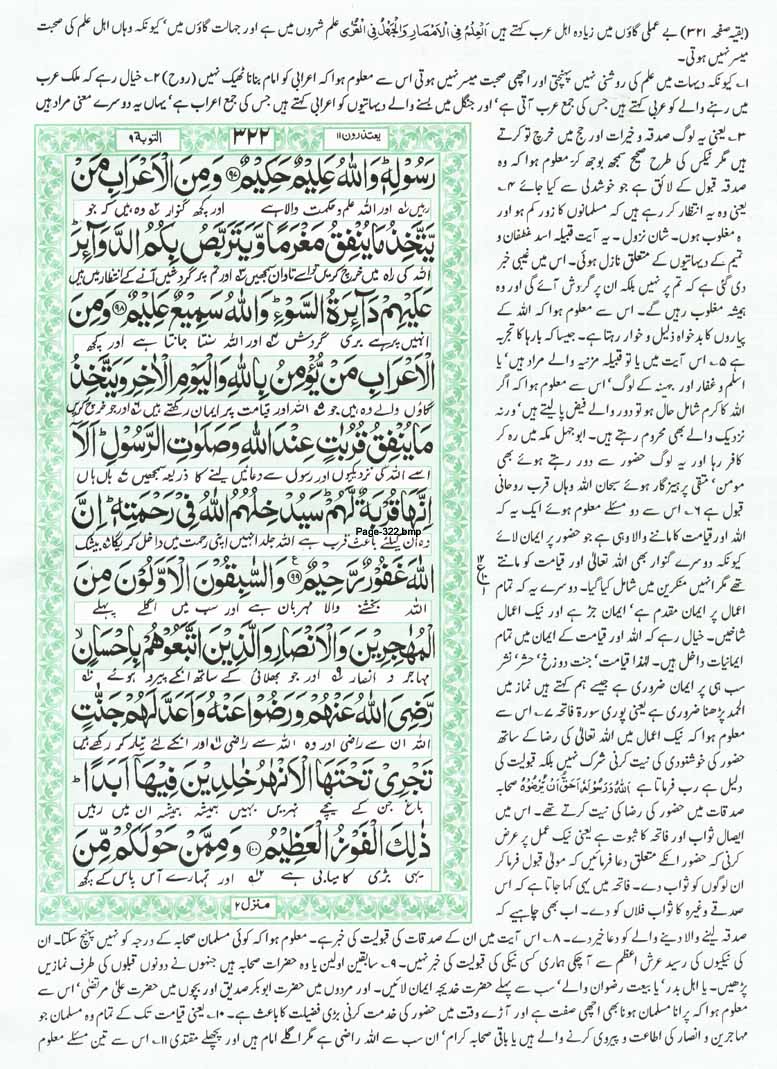 (بقیہ صفحہ ۳۲۱) بے عملی گاؤں میں زیادہ اہل عرب کہتے ہیں اَلْعِلْمُ فِی الْاَمْصَارِ وَالْجَهْلُ فِی الْقُرٰی علم شہروں میں ہے اور جہالت گاؤں میں' کیونکہ وہاں اہل علم کی صحبت
میسر نہیں ہوتی۔
۱؎ کیونکہ دیہات میں علم کی روشنی نہیں پہنچتی اور اچھی صحبت میسر نہیں ہوتی اس سے معلوم ہوا کہ اعرابی کو امام بنانا ٹھیک نہیں (روح) ۲؎ خیال رہے کہ ملک عرب
میں رہنے والے کو عربی کہتے ہیں جس کی جمع عرب آتی ہے' اور جنگل میں بسنے والے دیہاتیوں کو اعرابی کہتے ہیں جس کی جمع اعراب ہے' یہاں یہ دوسرے معنی مراد ہیں
۳؎ یعنی یہ لوگ صدقہ و خیرات اور حج میں خرچ تو کرتے
ہیں مگر ٹیکس کی طرح صحیح سمجھ بوجھ کر۔ معلوم ہوا کہ وہ
صدقہ قبول کے لائق ہے جو خوشدلی سے کیا جائے ۴؎
یعنی وہ یہ انتظار کر رہے ہیں کہ مسلمانوں کا زور کم ہو اور
ہ مغلوب ہوں۔ شان نزول۔ یہ آیت قبیلہ اسد غطفان و
تمیم کے دیہاتیوں کے متعلق نازل ہوئی۔ اس میں غیبی خبر
دی گئی ہے کہ تم پر نہیں بلکہ ان پر گردش آئے گی اور وہ
ہمیشہ مغلوب رہیں گے۔ اس سے معلوم ہوا کہ اللہ کے
پیاروں کا بدخواہ ذلیل و خوار رہتا ہے۔ جیسا کہ بارہا کا تجربہ
ہے ۵؎ اس آیت میں یا تو قبیلہ مزنیہ والے مراد ہیں' یا
اسلم و غفار اور جہینہ کے لوگ' اس سے معلوم ہوا کہ اگر
اللہ کا کرم شامل حال ہو تو دور والے فیض پا لیتے ہیں' ورنہ
نزدیک والے بھی محروم رہتے ہیں۔ ابوجہل مکہ میں رہ کر
کافر رہا اور یہ لوگ حضور سے دور رہتے ہوئے بھی
مومن' متقی پرہیزگار ہوئے سبحان اللہ وہاں قرب روحانی
قبول ہے ۶؎ اس سے دو مسئلے معلوم ہوئے ایک یہ کہ
اللہ اور قیامت کا ماننے والا وہی ہے جو حضور پر ایمان لائے
کیونکہ دوسرے گنوار بھی اللہ تعالیٰ اور قیامت کو مانتے
تھے مگر انہیں منکرین میں شامل کیا گیا۔ دوسرے یہ کہ تمام
اعمال پر ایمان مقدم ہے' ایمان جڑ ہے اور نیک اعمال
شاخیں۔ خیال رہے کہ اللہ اور قیامت کے ایمان میں تمام
ایمانیات داخل ہیں۔ لہٰذا قیامت' جنت دوزخ' حشر' نشر
سب ہی پر ایمان ضروری ہے جیسے ہم کہتے ہیں نماز میں
الحمد پڑھنا ضروری ہے یعنی پوری سورۃ فاتحہ ۷؎ اس سے
معلوم ہوا کہ نیک اعمال میں اللہ تعالیٰ کی رضا کے ساتھ
حضور کی خوشنودی کی نیت کرنی شرک نہیں بلکہ قبولیت کی
دلیل ہے رب فرماتا ہے اَللّٰهُ وَرَسُوْلُهٗٓ اَحَقُّ اَنْ یُّرْضُوْهُ صحابہ
صدقات میں حضور کی رضا کی نیت کرتے تھے۔ اس میں
ایصال ثواب اور فاتحہ کا ثبوت ہے یعنی نیک عمل پر عرض
کرنی کہ حضور انکے متعلق دعا فرمائیں کہ مولیٰ قبول فرما کر
ان لوگوں کو ثواب دے۔ فاتحہ میں یہی کہا جاتا ہے کہ اس
صدقے وغیرہ کا ثواب فلاں کو دے۔ اب بھی چاہیے کہ
یعتذرون ۱۱
۳۲۲
التوبۃ ۹
رَسُوْلِهٖ ؕ وَاللّٰهُ عَلِيْمٌ حَكِيْمٌ ﴿۹۷﴾ وَمِنَ الْاَعْرَابِ مَنْ
رہیں اور اللہ علم و حکمت والا ہے اور کچھ گنوار وہ ہیں کہ جو
يَّتَّخِذُ مَا يُنْفِقُ مَغْرَمًا وَّيَتَرَبَّصُ بِكُمُ الدَّوَآئِرَ ؕ
اللہ کی راہ میں خرچ کریں تو اسے تاوان سمجھیں اور تم پر گردشیں آنے کے انتظار میں رہیں
عَلَيْهِمْ دَآئِرَةُ السَّوْءِ ؕ وَاللّٰهُ سَمِيْعٌ عَلِيْمٌ ﴿۹۸﴾ وَمِنَ
انہیں پر ہے بری گردش اور اللہ سنتا جانتا ہے اور کچھ
الْاَعْرَابِ مَنْ يُّؤْمِنُ بِاللّٰهِ وَالْيَوْمِ الْاٰخِرِ وَيَتَّخِذُ
گاؤں والے وہ ہیں جو اللہ اور قیامت پر ایمان رکھتے ہیں اور جو خرچ کریں
مَا يُنْفِقُ قُرُبٰتٍ عِنْدَ اللّٰهِ وَصَلَوٰتِ الرَّسُوْلِ ؕ اَلَاۤ
اسے اللہ کی نزدیکیوں اور رسول سے دعائیں لینے کا ذریعہ سمجھیں ہاں ہاں
اِنَّهَا قُرْبَةٌ لَّهُمْ ؕ سَيُدْخِلُهُمُ اللّٰهُ فِيْ رَحْمَتِهٖ ؕ اِنَّ
Page-322.bmp
وہ ان کیلئے باعث قرب ہے اللہ جلد انہیں اپنی رحمت میں داخل کریگا بیشک
اللّٰهَ غَفُوْرٌ رَّحِيْمٌ ﴿۹۹﴾ وَالسّٰبِقُوْنَ الْاَوَّلُوْنَ مِنَ
اللہ بخشنے والا مہربان ہے اور سب میں اگلے پہلے
الْمُهٰجِرِيْنَ وَالْاَنْصَارِ وَالَّذِيْنَ اتَّبَعُوْهُمْ بِاِحْسَانٍ ۙ
مہاجر و انصار اور جو بھلائی کے ساتھ انکے پیرو ہوئے
رَّضِيَ اللّٰهُ عَنْهُمْ وَرَضُوْا عَنْهُ وَاَعَدَّ لَهُمْ جَنّٰتٍ
اللہ ان سے راضی اور وہ اللہ سے راضی اور انکے لئے تیار کر رکھے ہیں
تَجْرِيْ تَحْتَهَا الْاَنْهٰرُ خٰلِدِيْنَ فِيْهَاۤ اَبَدًا ؕ
باغ جن کے نیچے نہریں بہیں ہمیشہ ہمیشہ ان میں رہیں
ذٰلِكَ الْفَوْزُ الْعَظِيْمُ ﴿۱۰۰﴾ وَمِمَّنْ حَوْلَكُمْ مِّنَ
یہی بڑی کامیابی ہے اور تمہارے آس پاس کے کچھ
منزل ۲
صدقہ لینے والا دینے والے کو دعا خیر دے۔ ۸؎ اس آیت میں ان کے صدقات کی قبولیت کی خبر ہے۔ معلوم ہوا کہ کوئی مسلمان صحابہ کے درجہ کو نہیں پہنچ سکتا۔ ان
کی نیکیوں کی رسید عرش اعظم سے آ چکی ہماری کسی نیکی کی قبولیت کی خبر نہیں۔ ۹؎ سابقین اولین یا وہ حضرات صحابہ ہیں جنہوں نے دونوں قبلوں کی طرف نمازیں
پڑھیں۔ یا اہل بدر' یا بیعت رضوان والے' سب سے پہلے حضرت خدیجہ ایمان لائیں۔ اور مردوں میں حضرت ابوبکر صدیق اور بچوں میں حضرت علی مرتضیٰ' اس سے
معلوم ہوا کہ پرانا مسلمان ہونا بھی اچھی صفت ہے اور آڑے وقت میں حضور کی خدمت کرنی بڑی فضیلت کا باعث ہے۔ ۱۰؎ یعنی قیامت تک کے تمام وہ مسلمان جو
مہاجرین و انصار کی اطاعت و پیروی کرنے والے ہیں یا باقی صحابہ کرام' ان سب سے اللہ راضی ہے مگر اگلے امام ہیں اور پچھلے مقتدی ۱۱؎ اس سے تین مسئلے معلوم